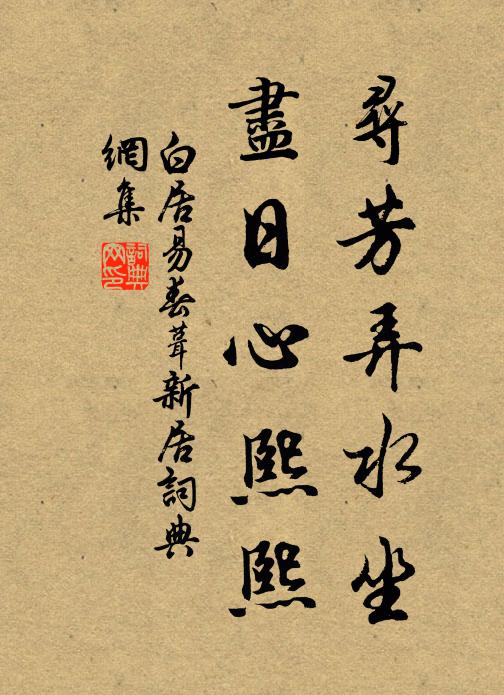 尋芳弄水坐
盡日心熙熙
白居易春葺新居詞典
網集
詞典
网印